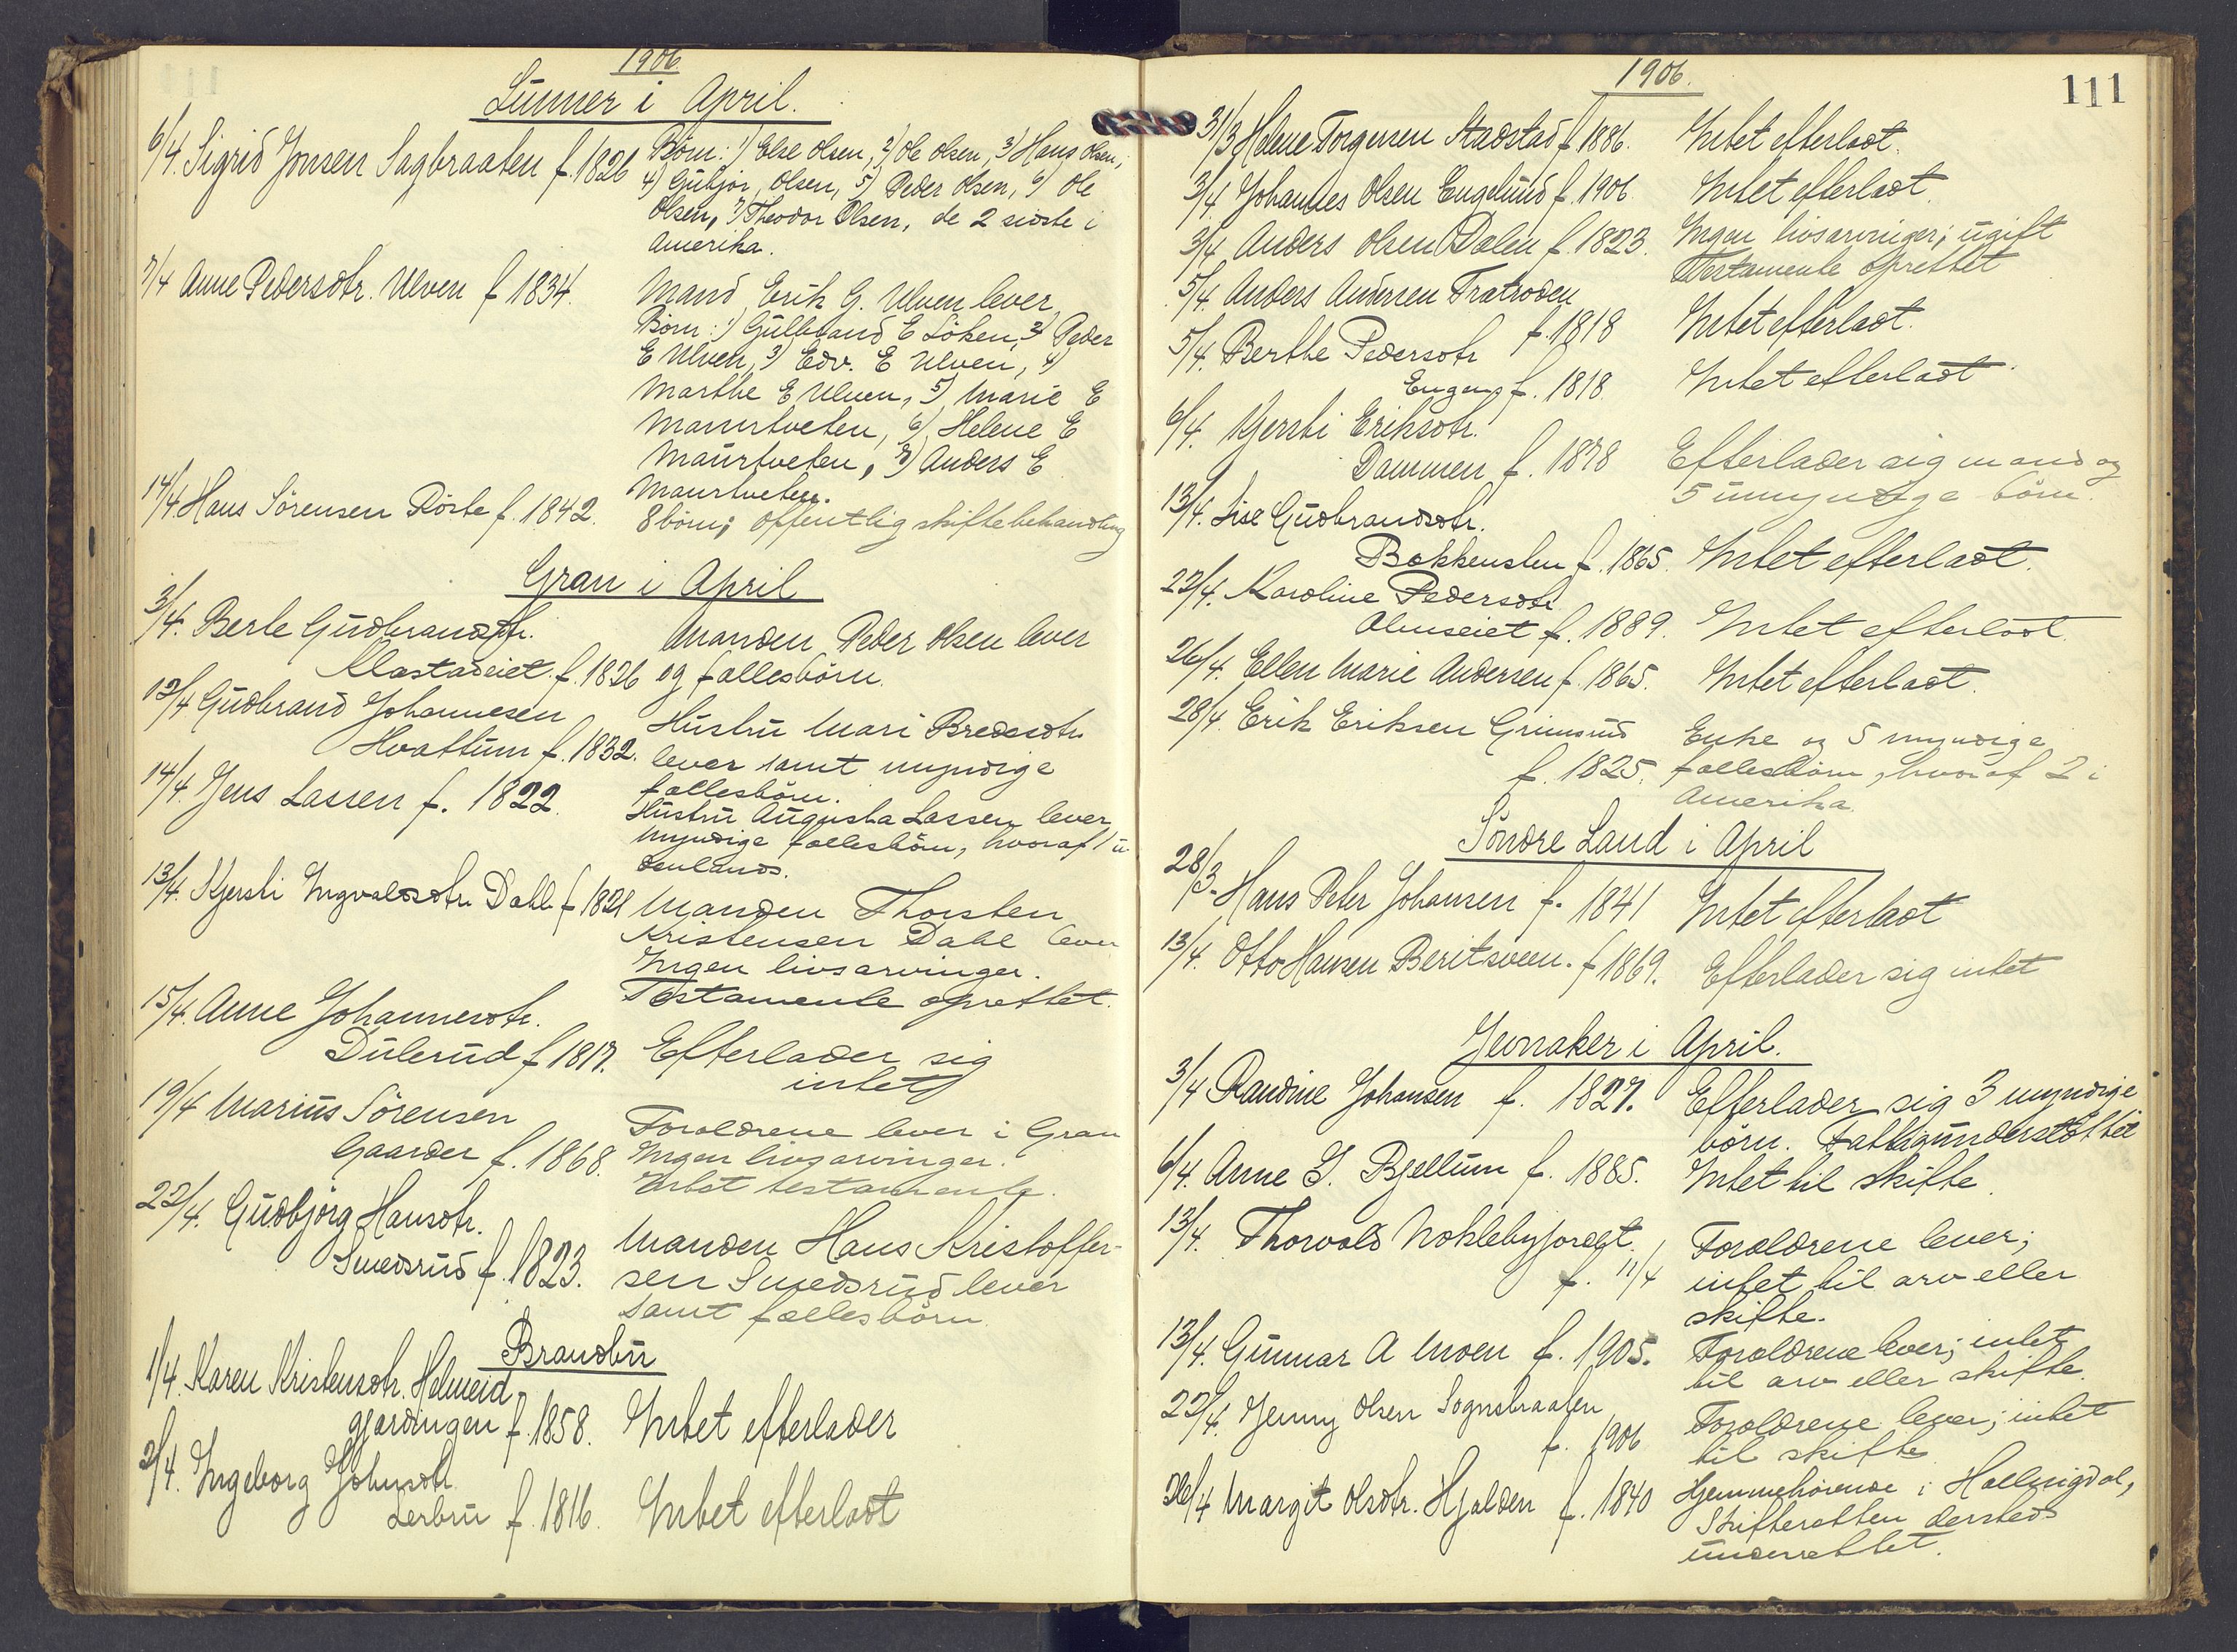 1906.
Lunner i April.
6/4. Sigrid Jonsen Sagbraaten f. 1826 Børn: 1) Else Olsen, 2) Ole Olsen, 3) Hans Olsen,
4) Gubjør, Olsen, 5) Peder Olsen, 6) Ole
Olsen, 7) Theodor Olsen, de 2 sidste i
Amerika.
7/4 Anne Pedersdtr. Ulven f 1834. Mand Erik G. Ulven lever
Børn: 1) Gulbrand E Løken, 2) Peder
E Ulven, 3) Edv. E Ulven, 4)
Marthe E Ulven, 5) Marie E
Maurtveten, 6) Helene E
Maurtveten, 7) Anders E
Maurtveten.
14/4. Hans Sørensen Røste f. 1842. 8 børn; offentlig skiftebehandling
Gran i April
3/4. Berte Gudbrandsdtr. Manden Peder Olsen lever
Klastadeiet f. 1826 og fællesbørn.
12/4 Gudbrand Johannesen Hustru Mari Bredesdtr.
Hvattum f. 1832. lever samt myndige
fællesbørn.
14/4. Jens Lassen f. 1822. Hustru Augusta Lassen lever
Myndige fællesbørn, hvoraf 1 u-
denlands.
13/4. Kjersti Ingvaldsdtr. Dahl f 1821 Manden Thorsten
Kristensen Dahl lever
Ingen livsarvinger.
Testamente oprettet.
15/4. Anne Johannesdtr.
Dulerud f 1817. Efterlader sig
intet
19/4 Marius Sørensen Forældrene lever i Gran
Gaarder f. 1868. Ingen livsarvinger.
Intet testamente.
22/4. Gudbjørg Hansdtr. Manden Hans Kristoffer-
Smedsrud f. 1823. sen Smedsrud lever
samt fællesbørn.
Brandbu
1/4. Karen Kristensdtr. Helmeid-
gjærdingen f. 1858. Intet efterlader
2/4. Ingeborg Johnsdtr.
Lerbru f. 1816. Intet efterladt
1906.
111
31/3 Helene Torgersen Stadstad f 1886. Intet efterladt.
3/4. Johannes Olsen Engelund f. 1906 Intet efterladt.
3/4. Anders Olsen Dalen f. 1823. Ingen livsarvinger; ugift
Testamente oprettet
5/4. Anders Andersen Fratroden
f. 1818 Intet efterladt.
5/4. Berthe Pedersdtr.
Engen f. 1818. Intet efterladt.
6/4. Kjersti Eriksdtr.
Dammen f. 1878 Efterlader sig mand og
5 umyndige børn.
13/4. Lise Gudbrandsdtr.
Bakkensten f. 1865. Intet efterladt.
22/4. Karoline Pedersdtr.
Almseiet f. 1889. Intet efterladt.
26/4. Ellen Marie Andersen f. 1865. Intet efterladt.
28/4. Erik Eriksen Grimsrud Enke og 5 myndige
f. 1825. fællesbørn, hvoraf 2 i
Amerika.
Søndre Land i April
28/3. Hans Peter Johansen f. 1841 Intet efterladt
13/4. Otto Hansen Beritsveen. f 1869. Efterlader sig intet
Jevnaker i April.
3/4 Randine Johansen f. 1827. Efterlader sig 3 myndige
børn. Fattigunderstøttet
6/4. Anne G. Bjellum f. 1885. Intet til skifte.
13/4. Thorvald Noklebyfordgt. Forældrene lever;
f. 11/4 intet til arv eller
skifte.
13/4. Gunnar A Moen f. 1905. Forældrene lever; intet
til arv eller skifte.
22/4. Jenny Olsen Sognsbraaten Forældrene lever; intet
f. 1906 til skifte
26/4 Margit Olsdtr. Hjalden f. 1840 Hjemmehørende i Hallingdal,
Skifteretten dersteds
underrettet.